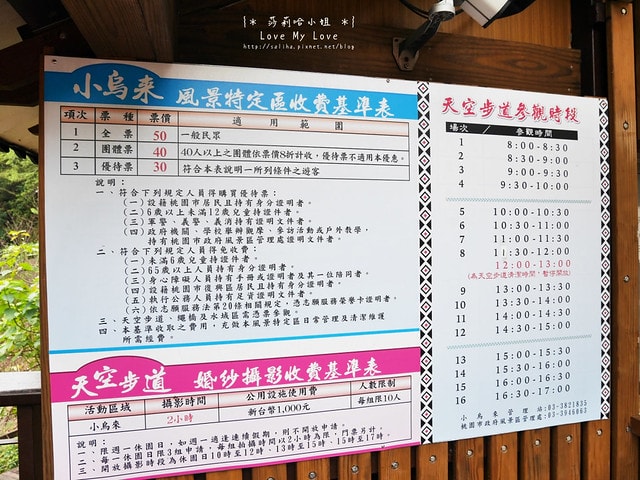 {＊ 莎莉哈小姐 ＊}
Love My Love
http://saliha.pixnet.net/blog
小烏來 風景特定區收費基準表
項次 票種 票價 適用範圍
1 全票 50 一般民眾
2 團體票 40 40人以上之團體依票價8折計收，優待票不適用本優惠。
3 優待票 30 符合本表說明一所列條件之遊客
說明：
一、符合下列規定人員得購買優待票：
(一)設籍桃園市居民且持有身分證明者。
(二)6歲以上未滿12歲兒童持證件者。
(三)軍警、義警、義消持有證明文件者。
(四)政府機關、學校舉辦觀摩、參訪活動或戶外教學，
持有桃園市政府風景區管理處證明文件者。
二、符合下列規定人員得免收費：
(一)未滿6歲兒童持證件者。
(二)65歲以上人員持有身分證明者。
(三)身心障礙人員持有手冊或證明者及其一位陪同者。
(四)設籍桃園市復興區居民且持有身分證明者。
(五)執行公務人員持有足資證明文件者。
(六)依志願服務法第20條相關規定，憑志願服務榮譽卡證明者。
三、天空步道、繩橋及水域區需憑票參觀。
四、本基準收取之費用，充做本風景特定區日常管理及清潔維護
所需經費。
天空步道 婚紗攝影收費基準表
活動區域 攝影時間 公用設施使用費 人數限制
小烏來 2小時 新台幣1,000元 每組限10人
說明：
一、限週一休園日，如週一適逢連續假期，則不開放申請。
二、每一休園日限3組申請，每組拍攝時間以2小時為限，門票另計。
三、開放攝影時段為休園日10時至12時、13時至15時、15時至17時。
天空步道參觀時段
場次 / 參觀時間
1 8:00-8:30
2 8:30-9:00
3 9:00-9:30
4 9:30-10:00
5 10:00-10:30
6 10:30-11:00
7 11:00-11:30
8 11:30-12:00
12:00-13:00
(為天空步道清潔時間，暫停開放)
9 13:00-13:30
10 13:30-14:00
11 14:00-14:30
12 14:30-15:00
13 15:00-15:30
14 15:30-16:00
15 16:00-16:30
16 16:30-17:00
小烏來管理站:03-3821835
桃園市政府風景區管理處:03-3946063